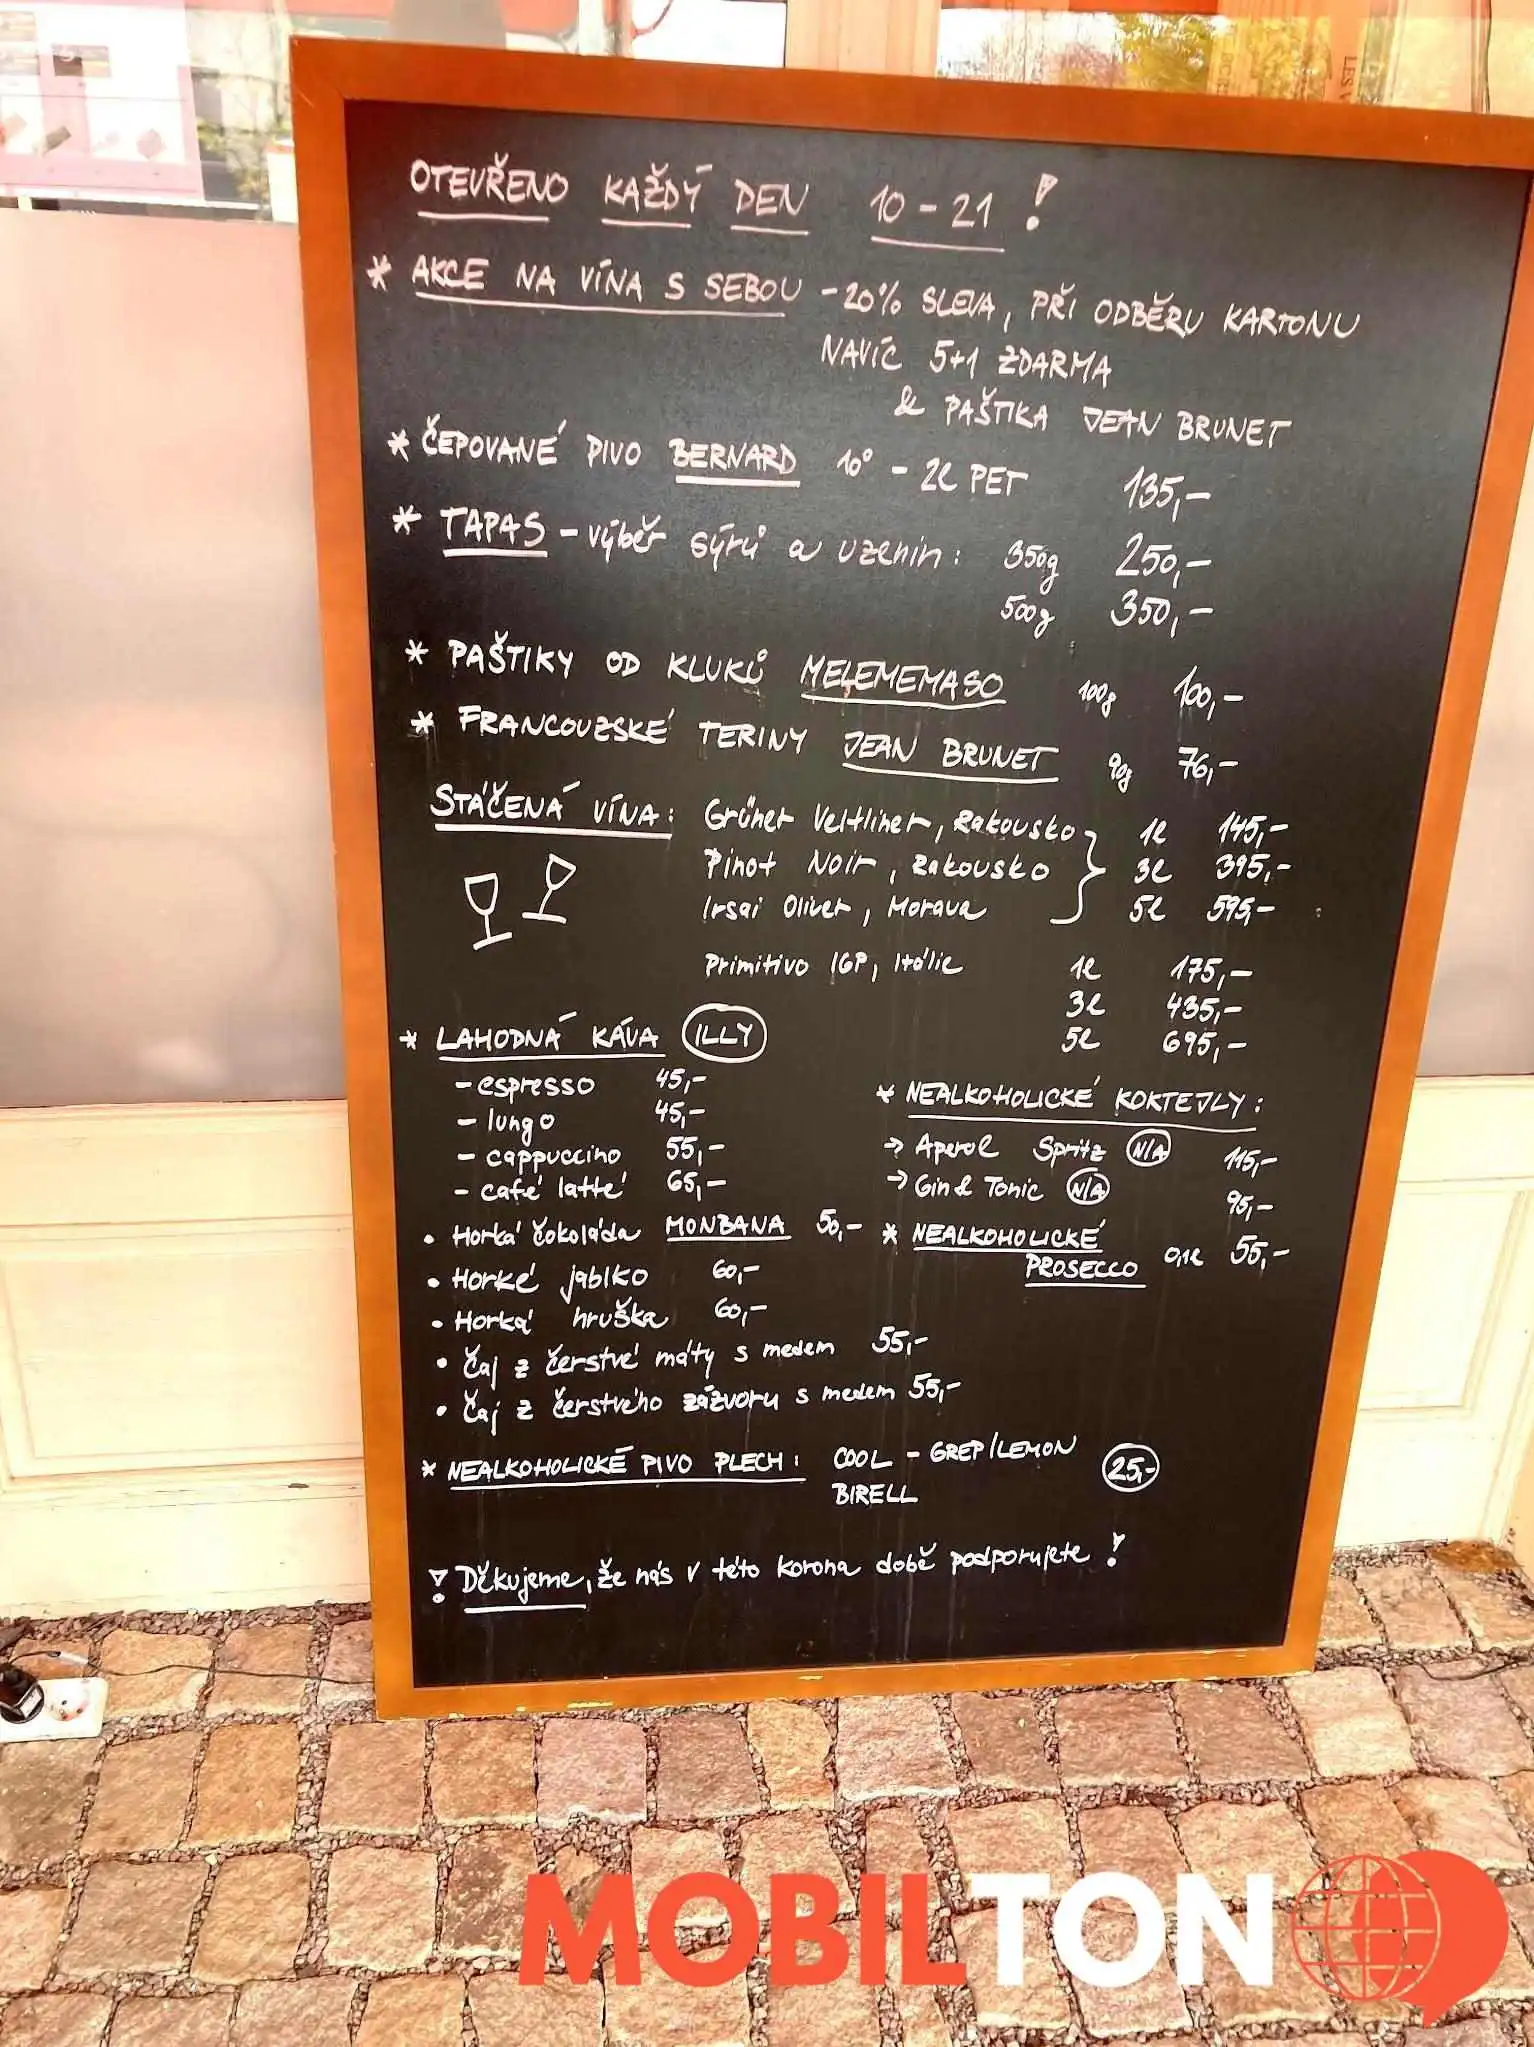 OTEVŘENO KAŽDÝ DEN 10-21 !
* AKCE NA VÍNA S SEBOU -20% SLEVA, PŘI ODBĚRU KARTONU
NAVÍC 5+1 ZDARMA
& PAŠTIKA JEAN BRUNET
* ČEPOVANÉ PIVO BERNARD 10° - 2l PET 135,-
* TAPAS - výběr sýrů a uzenin: 350g 250,-
500g 350,-
* PAŠTIKY OD KLUKŮ MELEMEMASO 100g 100,-
* FRANCOUZSKÉ TERINY JEAN BRUNET 90g 76,-
STÁČENÁ VÍNA: Grüner Veltliner, Rakousko 1l 145,-
Pinot Noir, Rakousko 3l 395,-
Irsai Oliver, Morava 5l 595,-
Primitivo IGP, Itálie 1l 175,-
3l 435,-
5l 695,-
* LAHODNÁ KÁVA ILLY
- espresso 45,-
- lungo 45,-
- cappuccino 55,-
- café latté 65,-
• Horká čokoláda MONBANA 50,-
• Horké jablko 60,-
• Horká hruška 60,-
• Čaj z čerstvé máty s medem 55,-
• Čaj z čerstvého zázvoru s medem 55,-
* NEALKOHOLICKÉ KOKTEJLY:
→ Aperol Spritz N/A 115,-
→ Gin & Tonic N/A 95,-
* NEALKOHOLICKÉ
PROSECCO 0,1l 55,-
* NEALKOHOLICKÉ PIVO PLECH: COOL - GREP/LEMON 25,-
BIRELL
! Děkujeme, že nás v této korona době podporujete !
MOBILTON